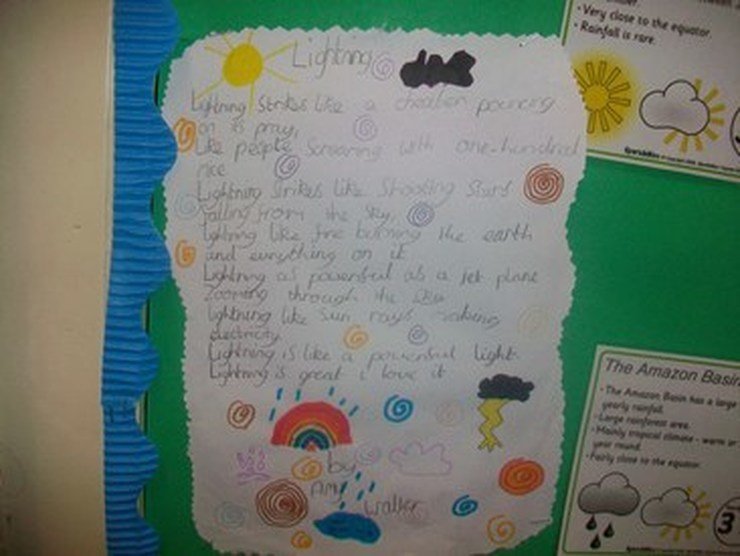 Lightning
Lightning strikes like a cheater pouncing
on its pray,
Like people screaming with one-hundred
mice
Lightning strikes like shooting stars
falling from the sky,
lightning like fire burning the earth
and everything on it
Lightning as powerful as a jet plane
Zooming through the sky
lightning like sun rays making
electricity
Lightning is like a powerful light
Lightning is great i love it
by
Amy
Walker
• Very close to the equator.
• Rainfall is rare.
The Amazon Basin
• The Amazon Basin has a large
yearly rainfall.
• Large rainforest area.
• Mainly tropical climate - warm
year round.
• Fairly close to the equator.
3